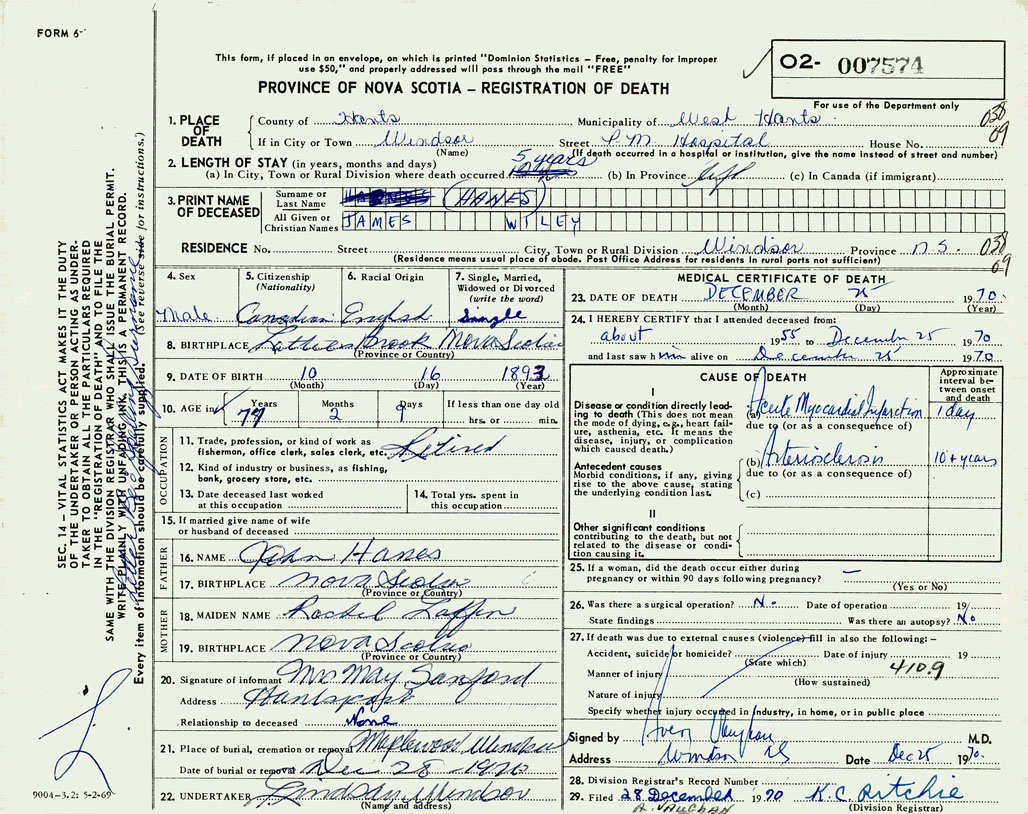 FORM 6-
This form, if placed in an envelope, on which is printed "Dominion Statistics – Free, penalty for Improper
use $50," and properly addressed will pass through the mail "FREE"
PROVINCE OF NOVA SCOTIA – REGISTRATION OF DEATH
O2- 007574
For use of the Department only
1. PLACE OF DEATH
County of Hants Municipality of West Hants 038
If in City or Town Windsor Street P.M. Hospital House No. 09
(Name) (If death occurred in a hospital or institution, give the name instead of street and number)
2. LENGTH OF STAY (in years, months and days) 5 years
(a) In City, Town or Rural Division where death occurred (b) In Province life (c) In Canada (if immigrant)
3. PRINT NAME OF DECEASED
Surname or Last Name HANES
All Given or Christian Names JAMES WILEY
RESIDENCE No. Street City, Town or Rural Division Windsor Province N.S. 038
(Residence means usual place of abode. Post Office Address for residents in rural parts not sufficient) 09
4. Sex Male
5. Citizenship (Nationality) Canadian
6. Racial Origin English
7. Single, Married, Widowed or Divorced (write the word) Single
8. BIRTHPLACE Brook Nova Scotia
(Province or Country)
9. DATE OF BIRTH 10 16 1893
(Month) (Day) (Year)
10. AGE in Years 77 Months 2 Days 9 If less than one day old
hrs. or min.
OCCUPATION
11. Trade, profession, or kind of work as
fisherman, office clerk, sales clerk, etc. Retired
12. Kind of industry or business, as fishing,
bank, grocery store, etc.
13. Date deceased last worked
at this occupation
14. Total yrs. spent in
this occupation
15. If married give name of wife
or husband of deceased
FATHER
16. NAME John Hanes
17. BIRTHPLACE Nova Scotia
(Province or Country)
MOTHER
18. MAIDEN NAME Rachel Laffin
19. BIRTHPLACE Nova Scotia
(Province or Country)
20. Signature of informant Mrs. May Sanford
Address Hantsport
Relationship to deceased None
21. Place of burial, cremation or removal Maplewood Windsor
Date of burial or removal Dec 28 - 1970
22. UNDERTAKER Lindsay Windsor
(Name and address)
MEDICAL CERTIFICATE OF DEATH
23. DATE OF DEATH DECEMBER 25 1970.
(Month) (Day) (Year)
24. I HEREBY CERTIFY that I attended deceased from:
about 1955 to December 25 1970
and last saw him alive on December 25 1970
CAUSE OF DEATH
Approximate interval between onset and death
I
Disease or condition directly leading to death (This does not mean the mode of dying, e.g., heart failure, asthenia, etc. It means the disease, injury, or complication which caused death.)
(a) Acute Myocardial Infarction 1 day
due to (or as a consequence of)
Antecedent causes
Morbid conditions, if any, giving rise to the above cause, stating the underlying condition last.
(b) Arteriosclerosis 10+ years
due to (or as a consequence of)
(c)
II
Other significant conditions
contributing to the death, but not related to the disease or condition causing it.
25. If a woman, did the death occur either during
pregnancy or within 90 days following pregnancy? –
(Yes or No)
26. Was there a surgical operation? No Date of operation 19
State findings Was there an autopsy? No
27. If death was due to external causes (violence) fill in also the following: –
Accident, suicide or homicide? Date of injury 19
(State which)
Manner of injury 410.9
(How sustained)
Nature of injury
Specify whether injury occurred in Industry, in home, or in public place
Signed by Avery Vaughan M.D.
Address Windsor NS Date Dec 25 1970.
28. Division Registrar's Record Number
29. Filed 28 December 1970 K.C. Ritchie
(Division Registrar)
A. VAUGHAN
SEC. 14 – VITAL STATISTICS ACT MAKES IT THE DUTY
OF THE UNDERTAKER OR PERSON ACTING AS UNDERTAKER
TO OBTAIN ALL THE PARTICULARS REQUIRED
IN THE "REGISTRATION OF DEATH" AND TO FILE THE
SAME WITH THE DIVISION REGISTRAR WHO SHALL ISSUE THE BURIAL PERMIT.
WRITE PLAINLY WITH UNFADING INK. THIS IS A PERMANENT RECORD.
Every item of information should be carefully supplied. (See reverse side for instructions.)
9004-3.2: 5-2-69